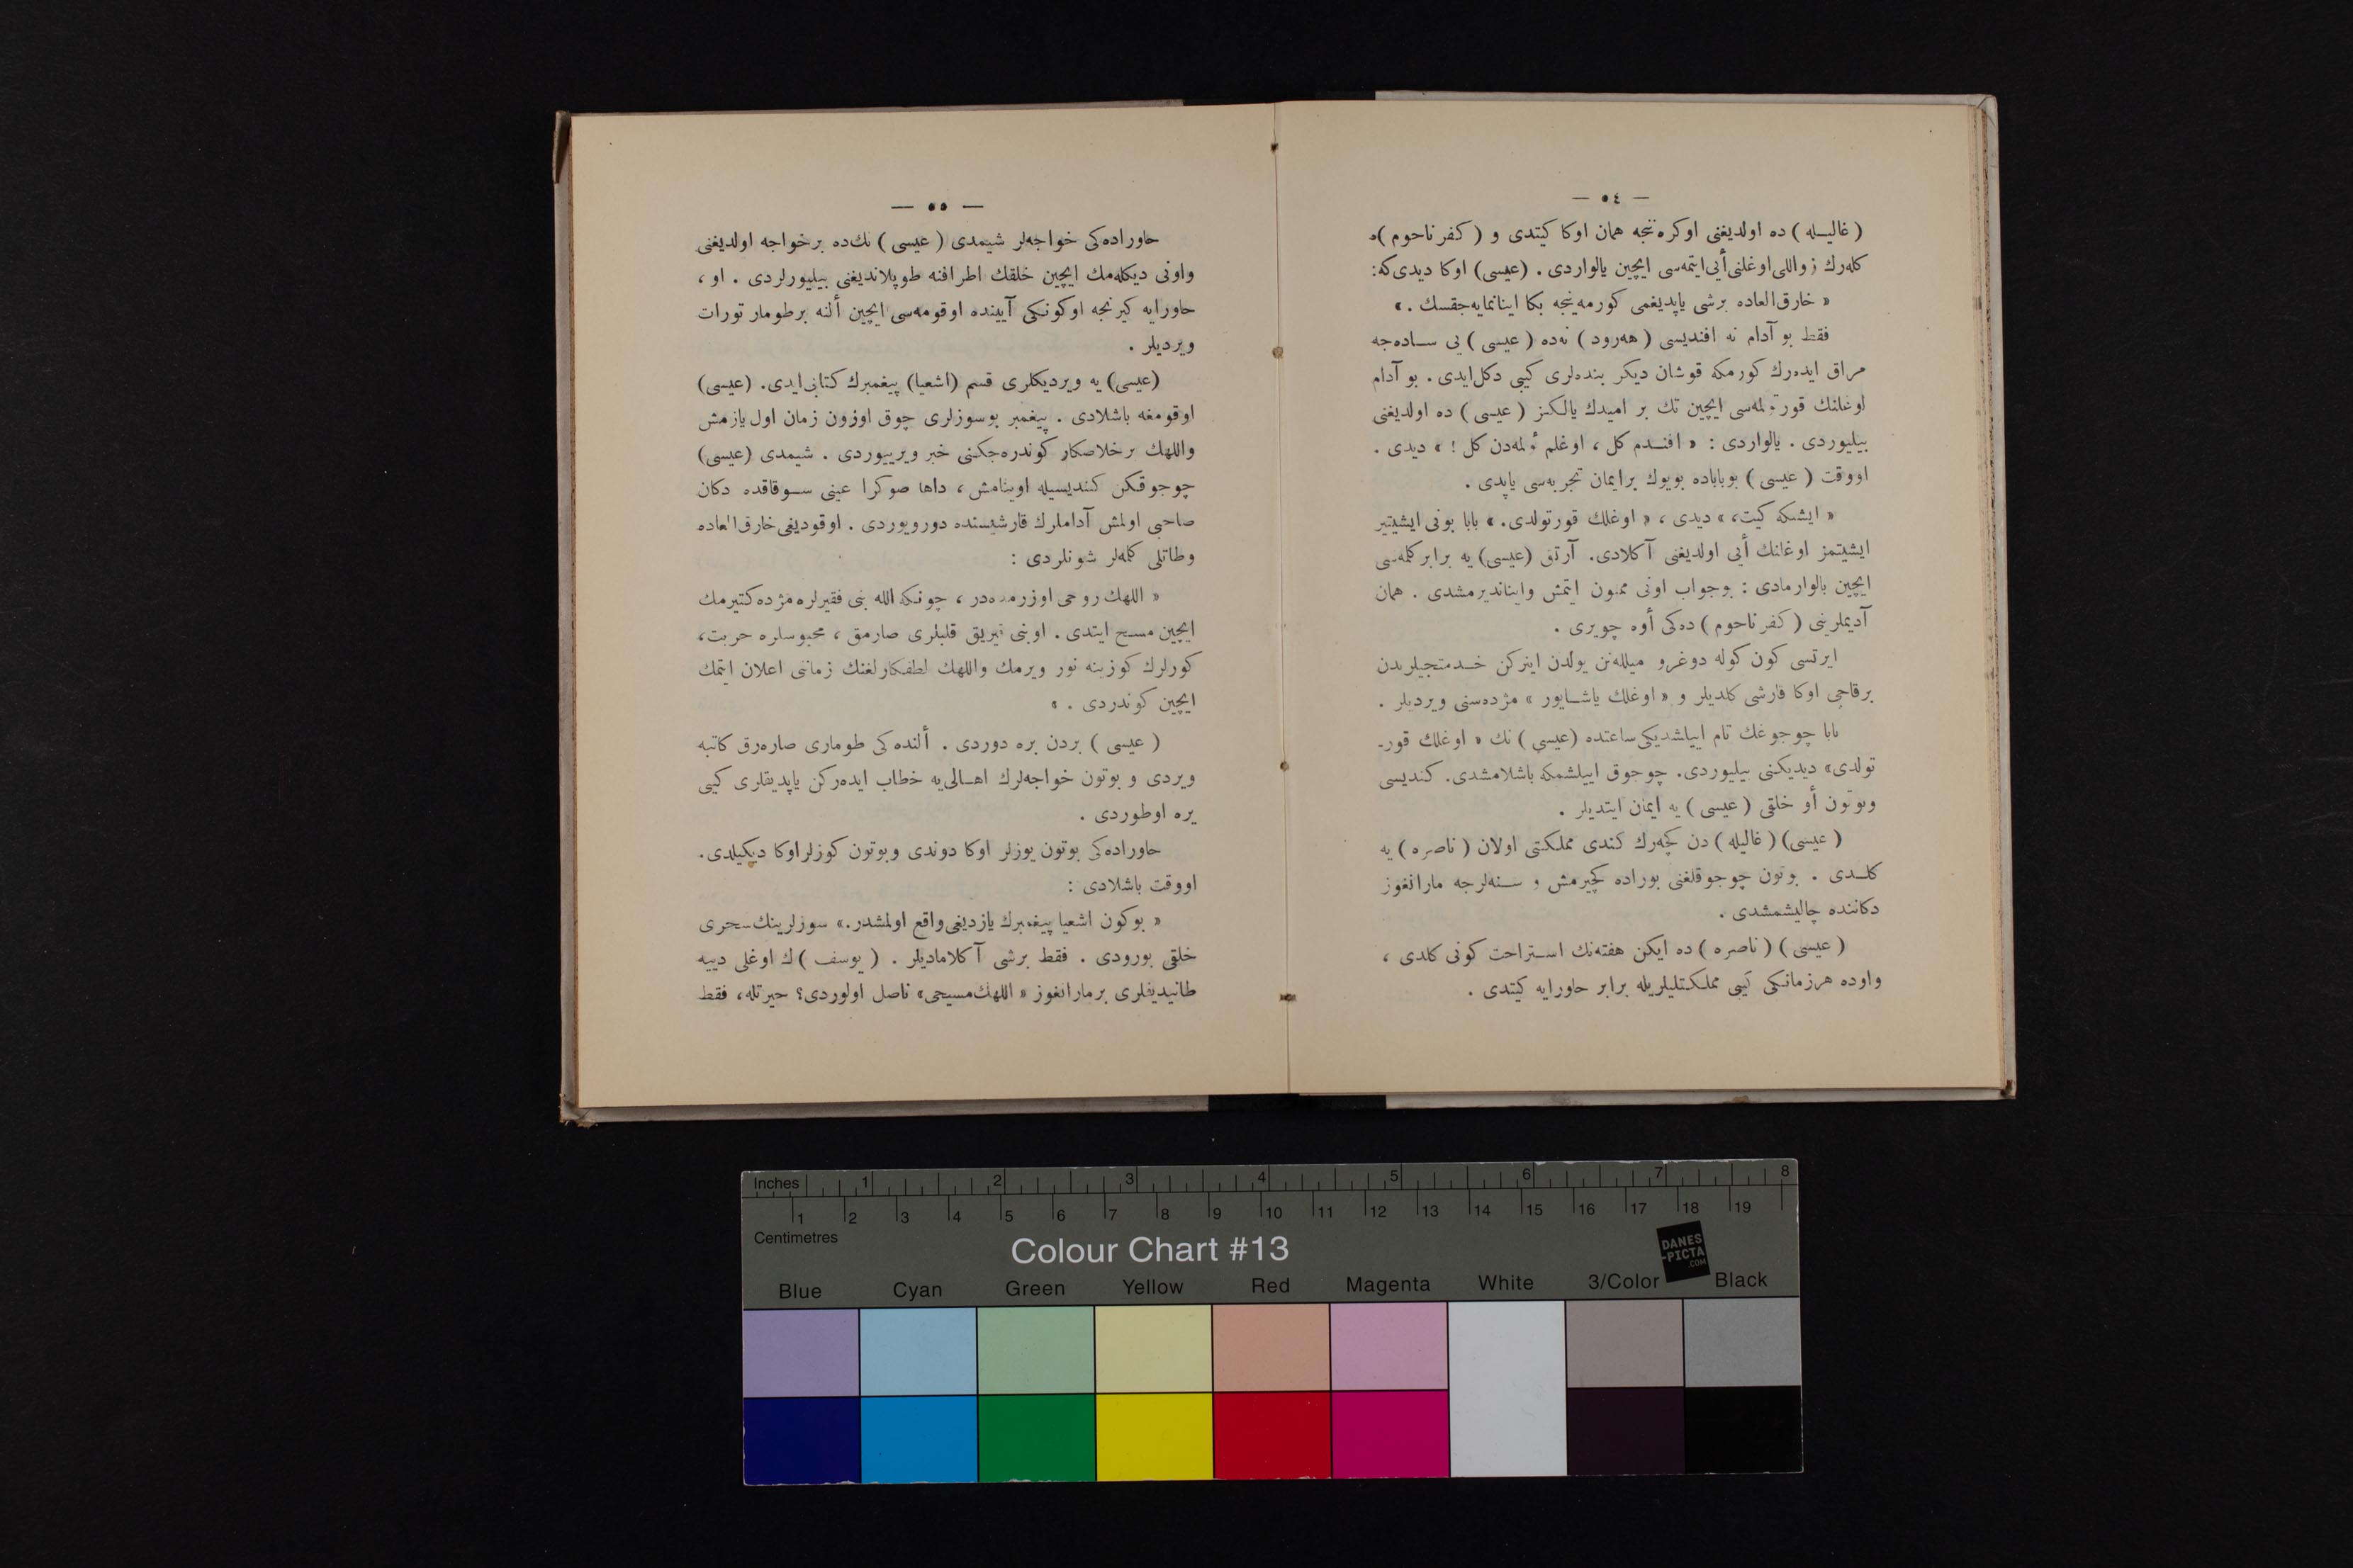 — ٥٤ —
(غاليله) ده اولديغنى اوكره‌ننجه همان اوكا كيتدى و (كفرناحوم)ه
كله‌رك زواللى اوغلنى أيى‌ايتمه‌سى ايچين يالواردى . (عيسى) اوكا ديدى‌كه:
« خارق‌العاده برشى ياپديغمى كورمه‌ينجه بكا اينانمايه‌جقسك . »
فقط بو آدام نه افنديسى (هه‌رود) نه‌ده (عيسى) يى ساده‌جه
مراق ايده‌رك كورمكه قوشان ديكر بنده‌لرى كيبى دكل‌ايدى . بو آدام
اوغلنك قورتولمه‌سى ايچين تك بر اميدك يالكز (عيسى) ده اولديغنى
بيليوردى . يالواردى : « افندم كل ، اوغلم ئولمه‌دن كل ! » ديدى .
اووقت (عيسى) بوباباده بويوك برايمان تجربه‌سى ياپدى .
« ايشكه كيت، » ديدى ، « اوغلك قورتولدى. » بابا بونى ايشيتير
ايشيتمز اوغلنك أيى اولديغنى آكلادى. آرتق (عيسى) يه برابر كلمه‌سى
ايچين يالوارمادى : بوجواب اونى ممنون ايتمش واينانديرمشدى . همان
آديملرينى (كفرناحوم) ده‌كى أوه چويرى .
ايرتسى كون كوله دوغرو ميللهنن يولدن اينركن خدمتجيلرندن
برقاچى اوكا قارشى كلديلر و « اوغلك ياشايور » مژده‌سنى ويرديلر .
بابا چوجوغك تام اييلشديكى‌ساعتده (عيسى) نك « اوغلك قور-
تولدى» ديديكنى بيليوردى. چوجوق اييلشمكه باشلامشدى. كنديسى
وبوتون أو خلقى (عيسى) يه ايمان ايتديلر .
(عيسى) (غاليله) دن كچه‌رك كندى مملكتى اولان (ناصره) يه
كلدى . بوتون چوجوقلغنى بوراده كچيرمش و سنه‌لرجه مارانغوز
دكاننده چاليشمشدى .
(عيسى) (ناصره) ده ايكن هفته‌نك استراحت كونى كلدى ،
واوده هرزمانكى كيبى مملكتليلريله برابر حاورايه كيتدى .
— ٥٥ —
حاوراده‌كى خواجه‌لر شيمدى (عيسى) نك‌ده برخواجه اولديغنى
واونى ديكله‌مك ايچين خلقك اطرافنه طوپلانديغنى بيليورلردى . او ،
حاورايه كيرنجه اوكونكى آيينده اوقومه‌سى ايچين ألنه برطومار تورات
ويرديلر .
(عيسى) يه ويردكلرى قسم (اشعيا) پيغمبرك كتابى‌ايدى. (عيسى)
اوقومغه باشلادى . پيغمبر بوسوزلرى چوق اوزون زمان اول يازمش
واللهك برخلاصكار كوندره‌جكنى خبر ويرييوردى . شيمدى (عيسى)
چوجوقكن كنديسيله اوينامش ، داها صوكرا عينى سوقاقده دكان
صاحبى اولمش آداملرك قارشيسنده دورويوردى . اوقوديغى خارق‌العاده
وطاتلى كلمه‌لر شونلردى :
« اللهك روحى اوزرمده‌در ، چونكه الله بنى فقيرلره مژده كتيرمك
ايچين مسح ايتدى . اوبنى قيريق قلبلرى صارمق ، محبوسلره حريت،
كورلرك كوزينه نور ويرمك واللهك لطفكارلغنك زماننى اعلان ايتمك
ايچين كوندردى . »
(عيسى) بردن بره دوردى . ألنده‌كى طومارى صاره‌رق كاتبه
ويردى و بوتون خواجه‌لرك اهالى‌يه خطاب ايده‌ركن ياپديقلرى كيبى
يره اوطوردى .
حاوراده‌كى بوتون يوزلر اوكا دوندى وبوتون كوزلراوكا ديكيلدى.
اووقت باشلادى :
« بوكون اشعيا پيغمبرك يازديغى‌واقع اولمشدر.» سوزلرينك‌سحرى
خلقى بورودى . فقط برشى آكلاماديلر . (يوسف)ك اوغلى دييه
طانيديقلرى برمارانغوز « اللهك‌مسيحى» ناصل اولوردى؟ حيرتله، فقط
Inches 1 2 3 4 5 6 7 8
1 2 3 4 5 6 7 8 9 10 11 12 13 14 15 16 17 18 19
Centimetres
Colour Chart #13
DANES
-PICTA
.COM
Blue Cyan Green Yellow Red Magenta White 3/Color Black